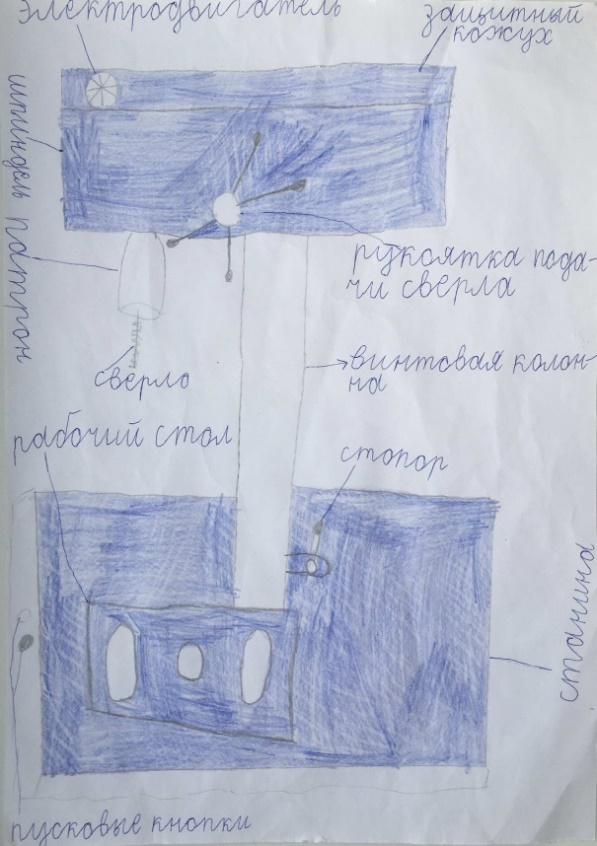 электродвигатель
защитный
кожух
шпиндель
патрон
рукоятка пода-
чи сверла
винтовая колон-
на
сверло
рабочий стол
стопор
станина
пусковые кнопки